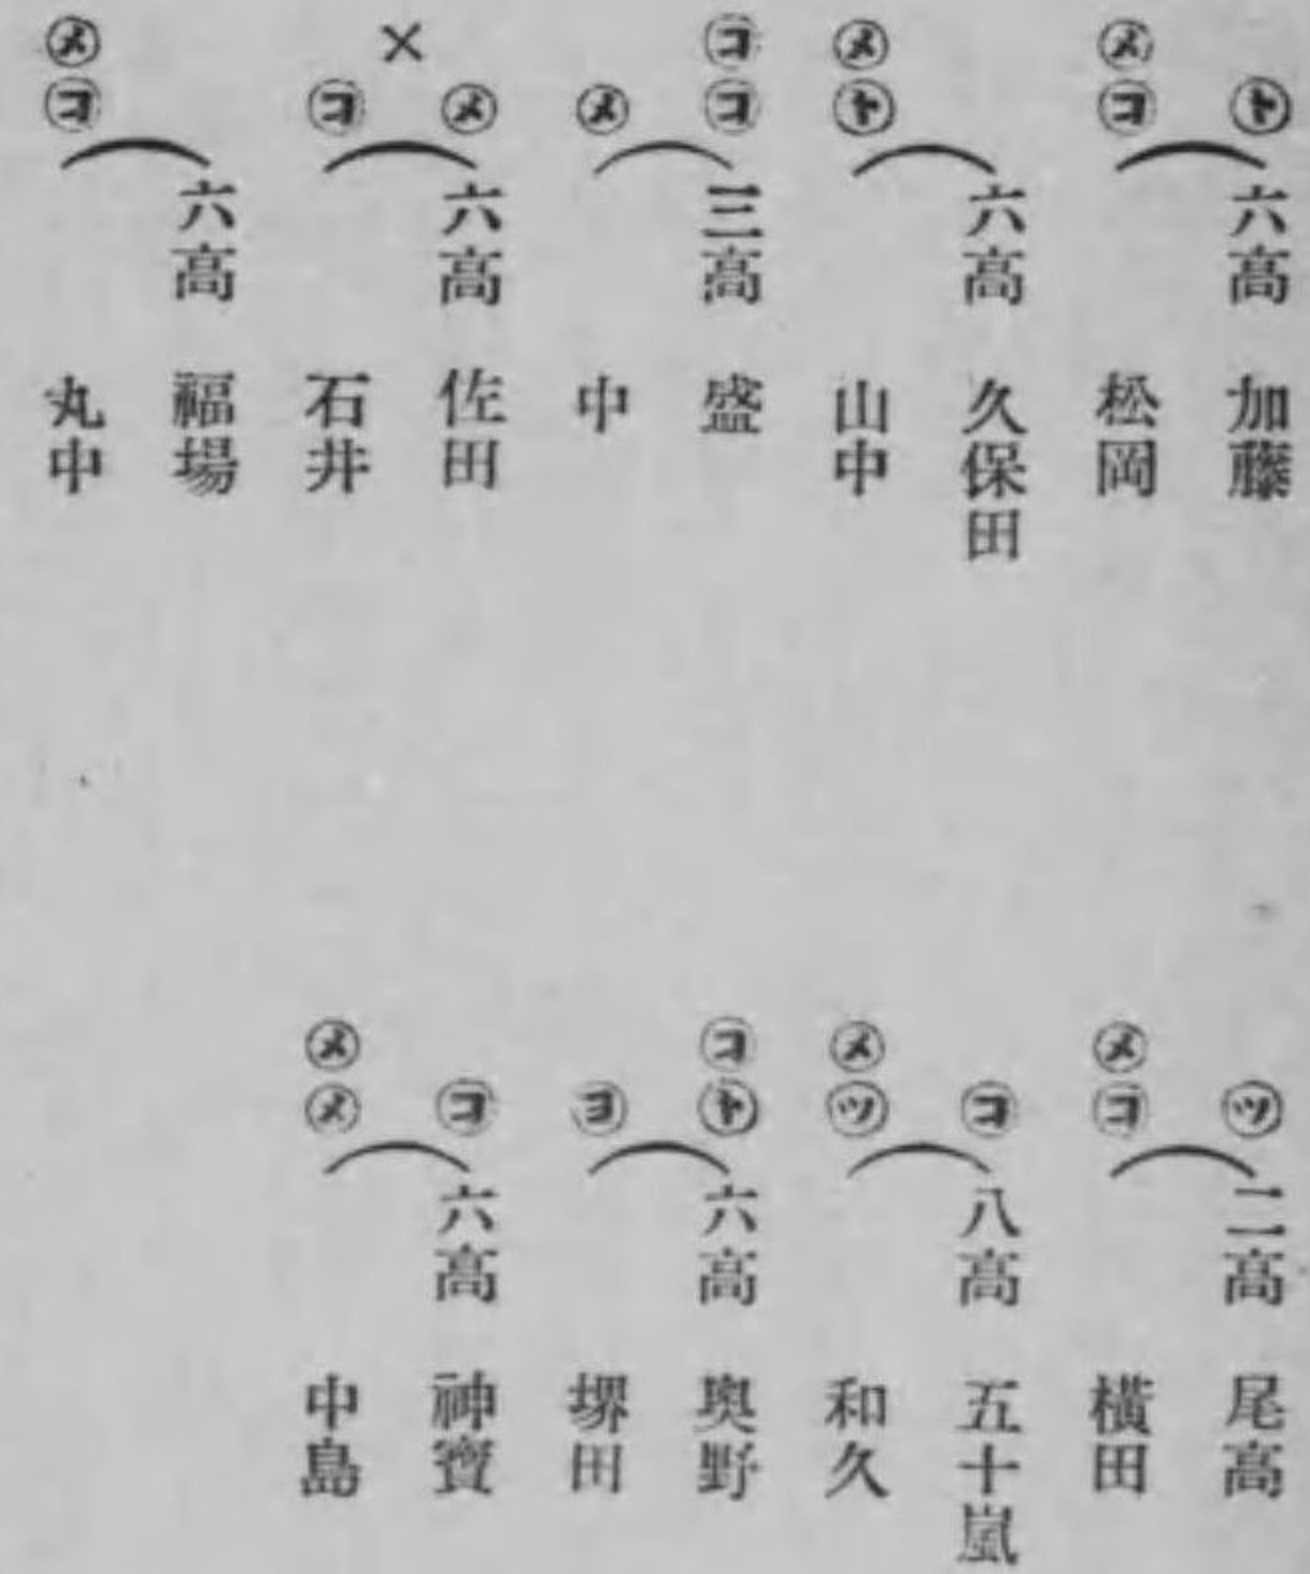 ㋣ 六高 加藤
㋱㋙ 松岡
六高 久保田
㋱㋣ 山中
㋙㋙ 三高 盛
㋱ 中
×
㋱ 六高 佐田
㋙ 石井
六高 福場
㋱㋙ 丸中
㋡ 二高 尾高
㋱㋙ 横田
㋙ 八高 五十嵐
㋱㋡ 和久
㋙㋣ 六高 奥野
㋵ 堺田
㋙ 六高 神寳
㋱㋱ 中島